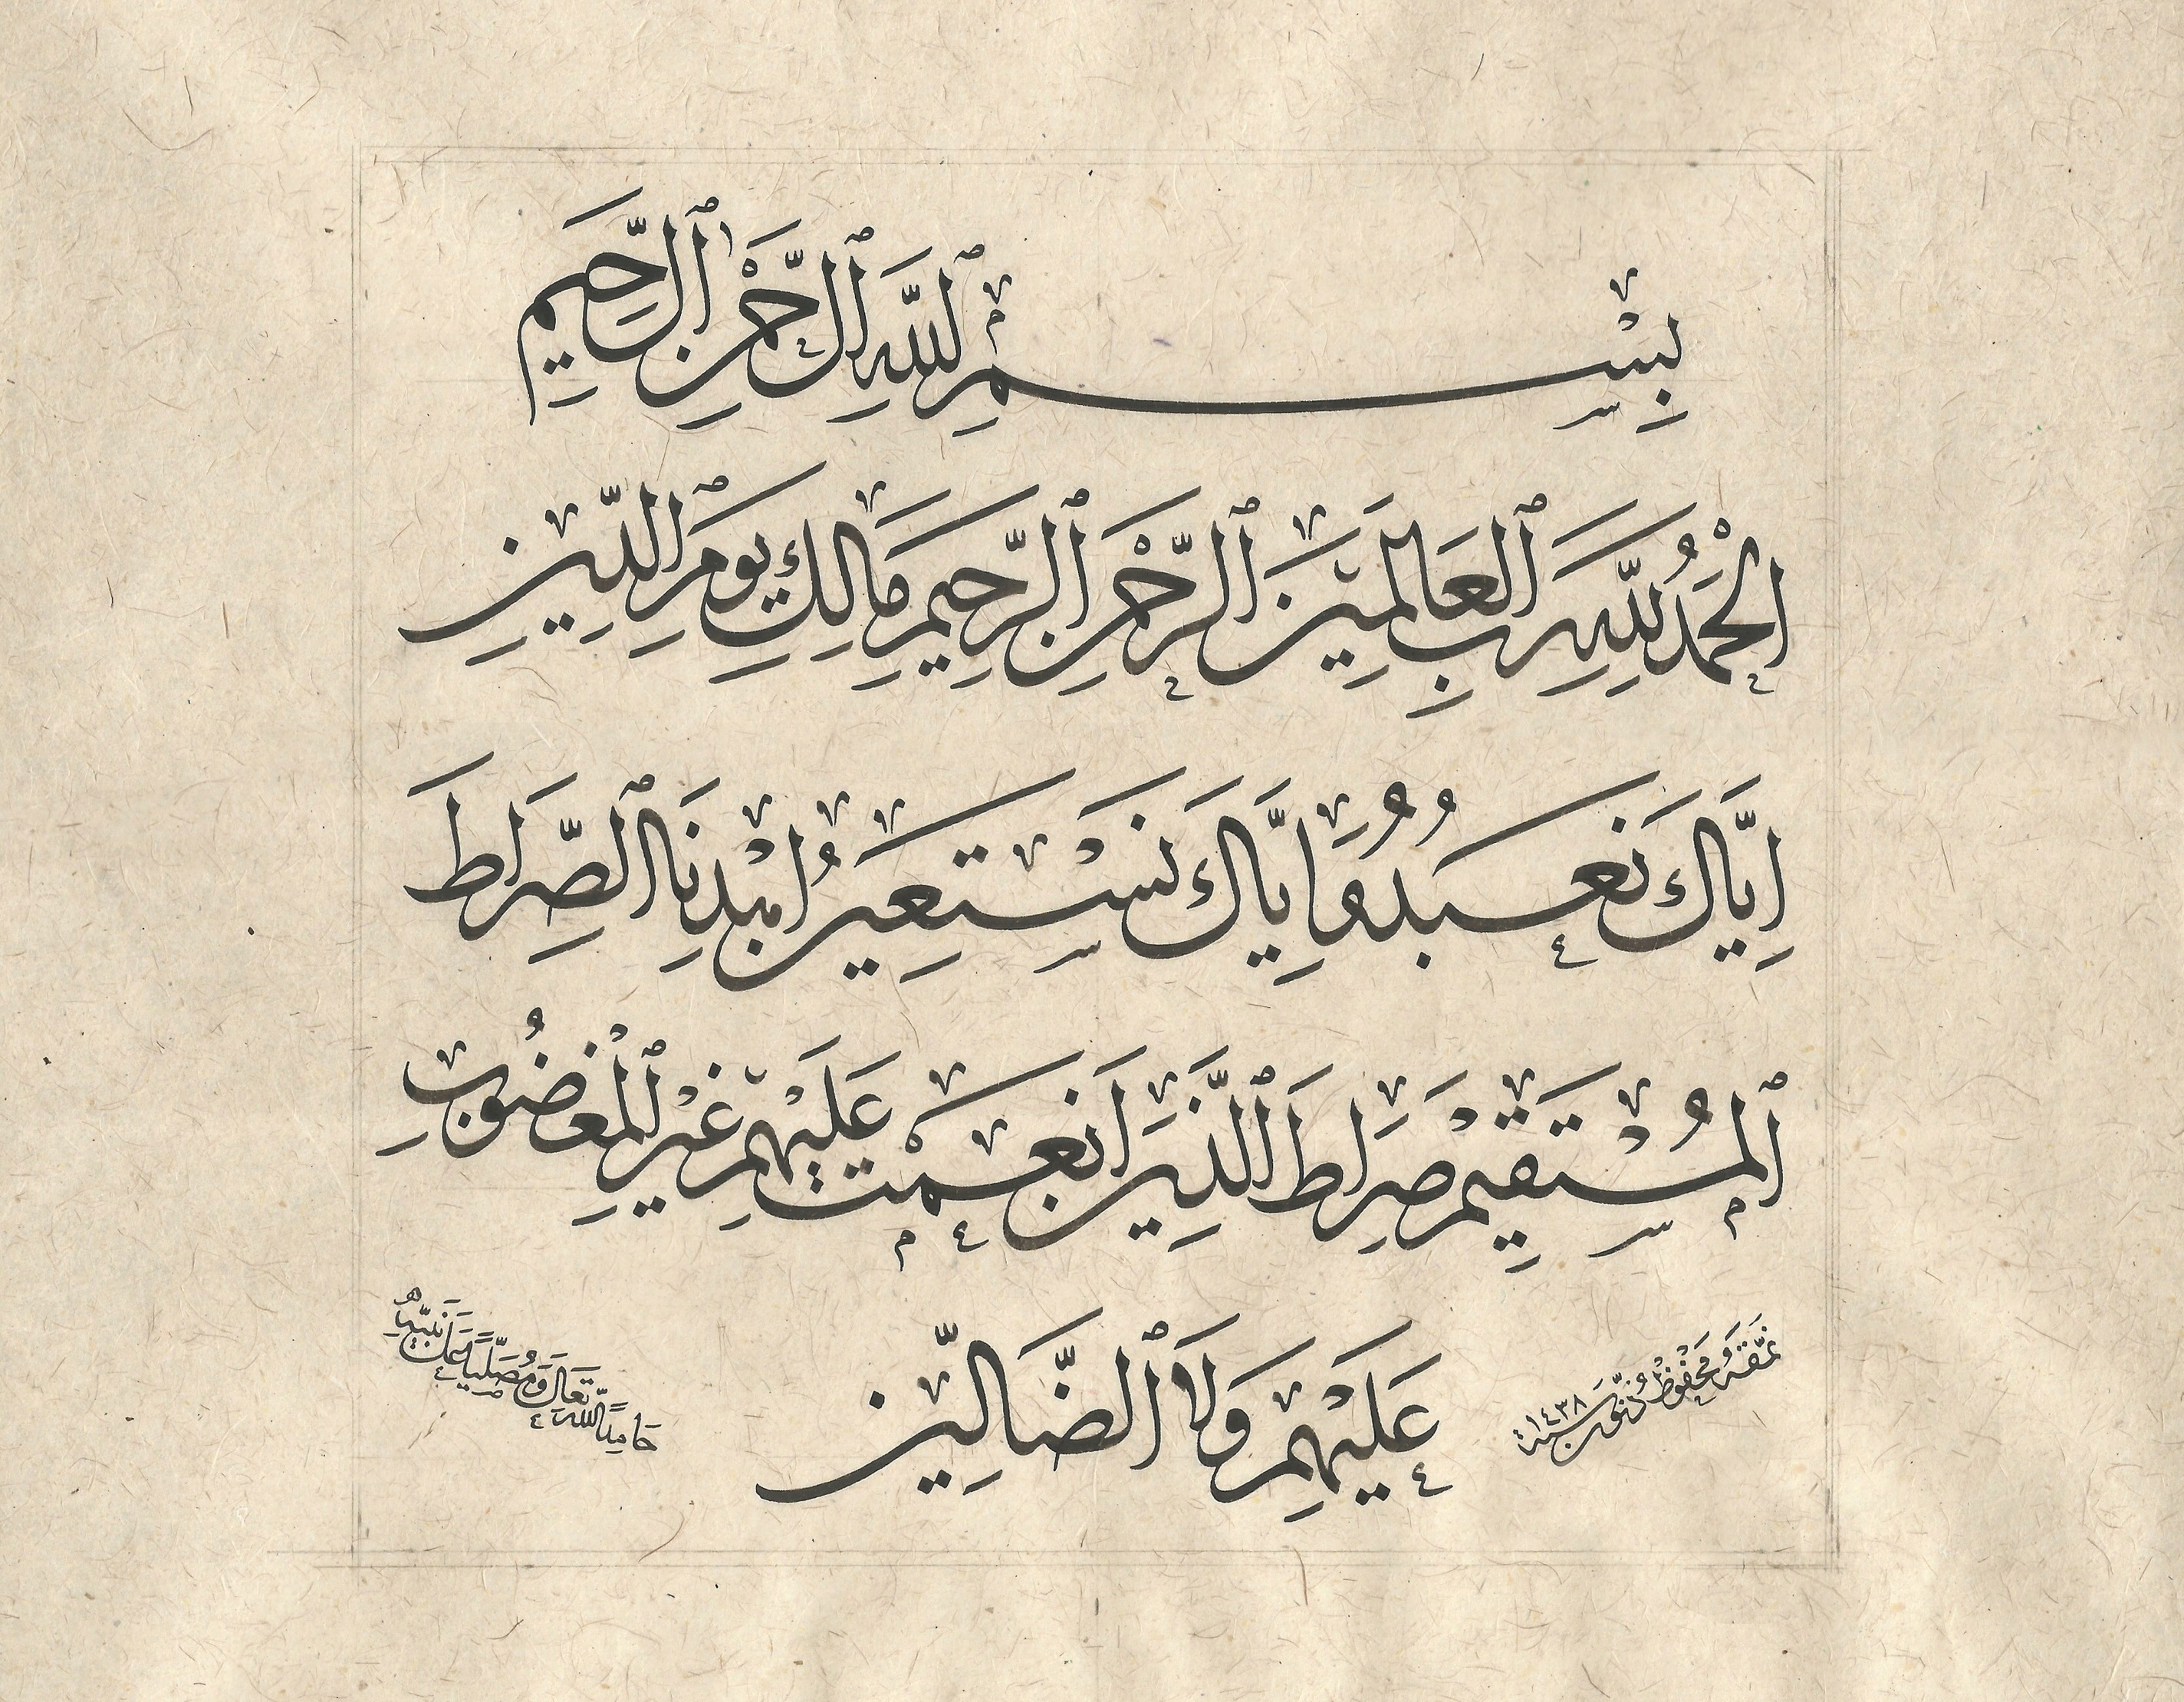 بِسْمِ ٱللَّهِ ٱلرَّحْمٰنِ ٱلرَّحِيمِ
اَلْحَمْدُ لِلَّهِ رَبِّ ٱلْعَالَمِينَ ٱلرَّحْمٰنِ ٱلرَّحِيمِ مَالِكِ يَوْمِ ٱلدِّينِ
اِيَّاكَ نَعْبُدُ وَاِيَّاكَ نَسْتَعِينُ اِهْدِنَا ٱلصِّرَاطَ
ٱلْمُسْتَقِيمَ صِرَاطَ ٱلَّذِينَ اَنْعَمْتَ عَلَيْهِمْ غَيْرِ ٱلْمَغْضُوبِ
عَلَيْهِمْ وَلَا ٱلضَّالِّينَ
نَمَّقَهُ مَحْفُوظْ سنة ١٤٣٨
حَامِدًا لِلَّهِ تَعَالَى وَمُصَلِّيًا عَلَى نَبِيِّهِ